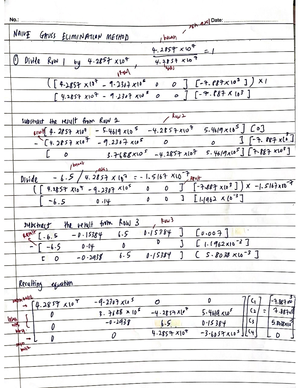 No.: Date:
NAIVE GAUSS ELIMINATION METHOD
① Divide Row 1 by 4.2857 x10⁷ 4.2857 x10⁷ / 4.2857 x10⁷ = 1
([4.2857 x10⁷ - 9.2307 x10⁵ 0 0] [-7.887 x10³]) x 1
[4.2857 x10⁷ - 9.2307 x10⁵ 0 0] [-7.887 x10³]
Substract the result from Row 2
4.2857 x10⁷ - 5.4619 x10⁵ -4.2857 x10⁷ 5.4619 x10⁵] [0]
[4.2857 x10⁷ -9.2307 x10⁵ 0 0] [-7.887 x10³]
[0 3.7688 x10⁵ -4.2857 x10⁷ 5.4619 x10⁵] [7.887 x10³]
Divide -6.5 / 4.2857 x10⁷ = -1.5167 x10⁻⁷
([4.2857 x10⁷ -9.2307 x10⁵ 0 0] [-7.887 x10³]) x -1.5167 x10⁻⁷
[-6.5 0.14 0 0] [1.1962 x10⁻³]
Substract the result from Row 3
[-6.5 -0.15384 6.5 0.15384] [0.007]
-[-6.5 0.14 0 0] [1.1962 x10⁻³]
[0 -0.2938 6.5 0.15384] [5.8038 x10⁻³]
Resulting equation
4.2857 x10⁷ -9.2307 x10⁵ 0 0 C₁ -7.887 x10³
0 3.7688 x10⁵ -4.2857 x10⁷ 5.4619 x10⁵ C₂ = 7.887 x10³
0 -0.2938 6.5 0.15384 C₃ 5.8038 x10⁻³
0 0 4.2857 x10⁷ -3.6057 x10⁵ C₄ 0